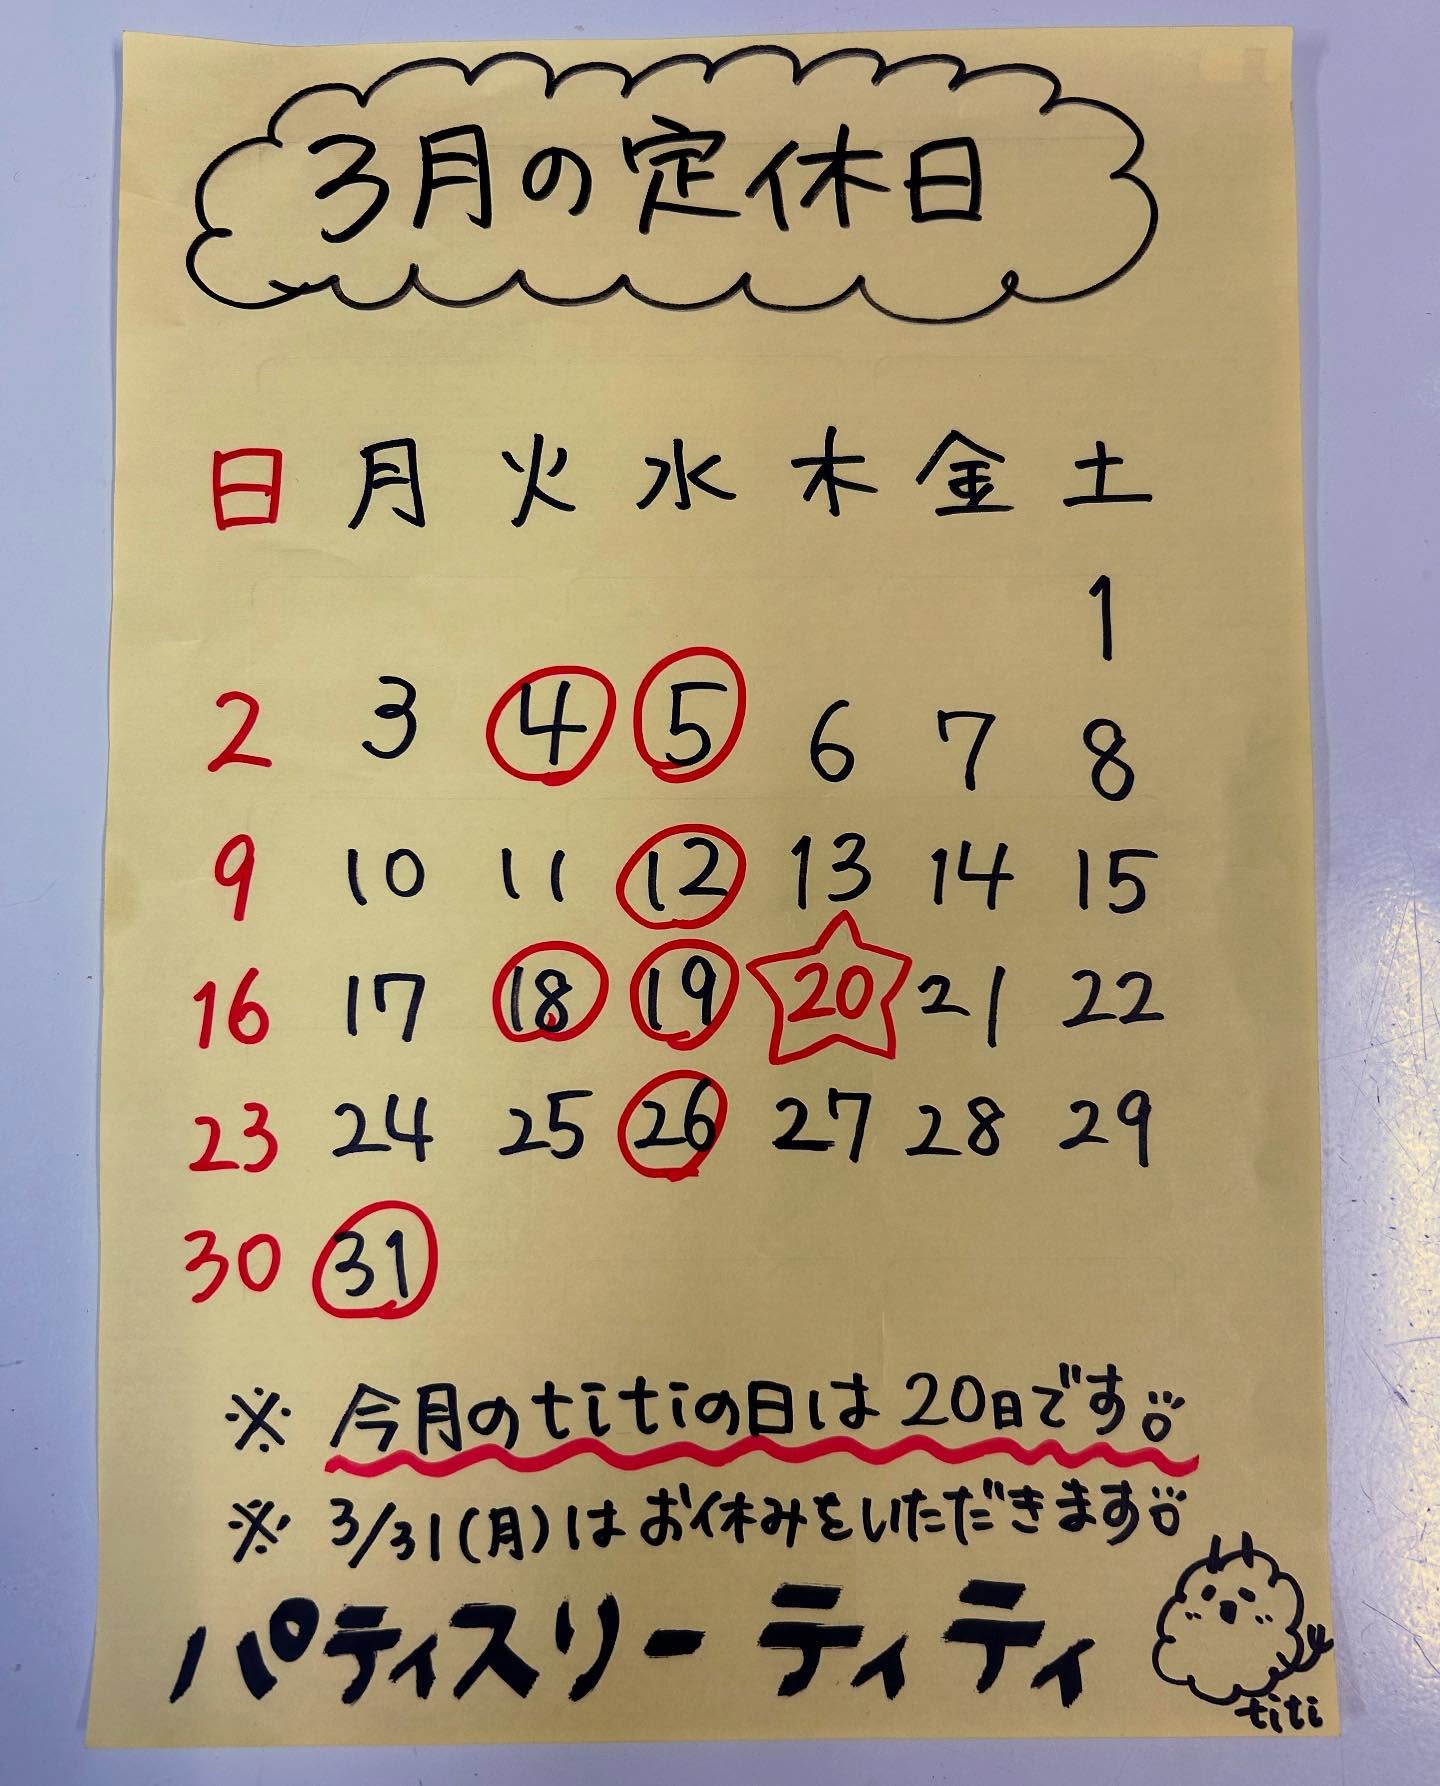 3月の定休日
日 月 火 水 木 金 土
1
2 3 4 5 6 7 8
9 10 11 12 13 14 15
16 17 18 19 20 21 22
23 24 25 26 27 28 29
30 31
※ 今月のtitiの日は20日です
※ 3/31(月)はお休みをいただきます
パティスリー ティティ
titi